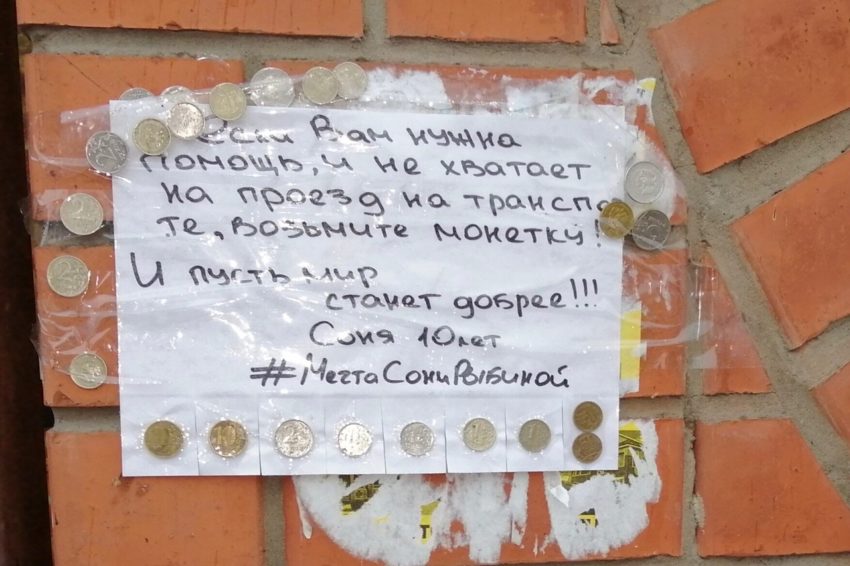 если Вам нужна
помощь, и не хватает
на проезд на транспо
те, возьмите монетку!
И пусть мир
станет добрее!!!
Соня 10 лет
#МечтаСониРыбиной